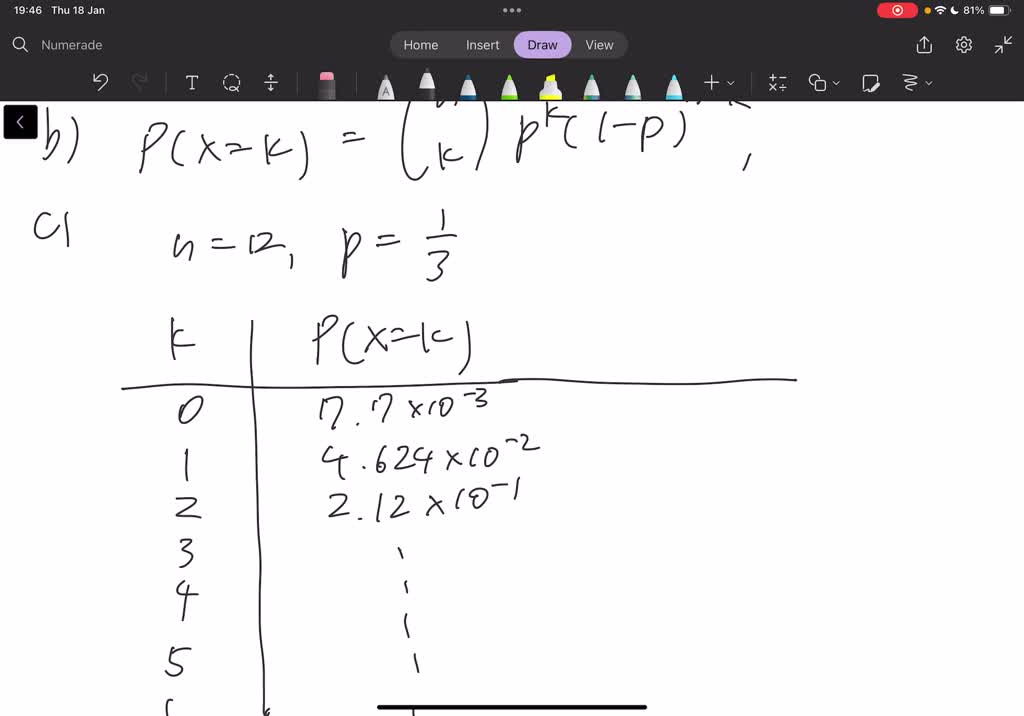 19:46 Thu 18 Jan 81%
Numerade Home Insert Draw View
T A
b) P(X=k) = ( k ) p^k (1-p) ,
c) n=12, p= 1/3
k P(X=k)
0 7.7×10^-3
1 4.624×10^-2
2 2.12×10^-1
3
4
5